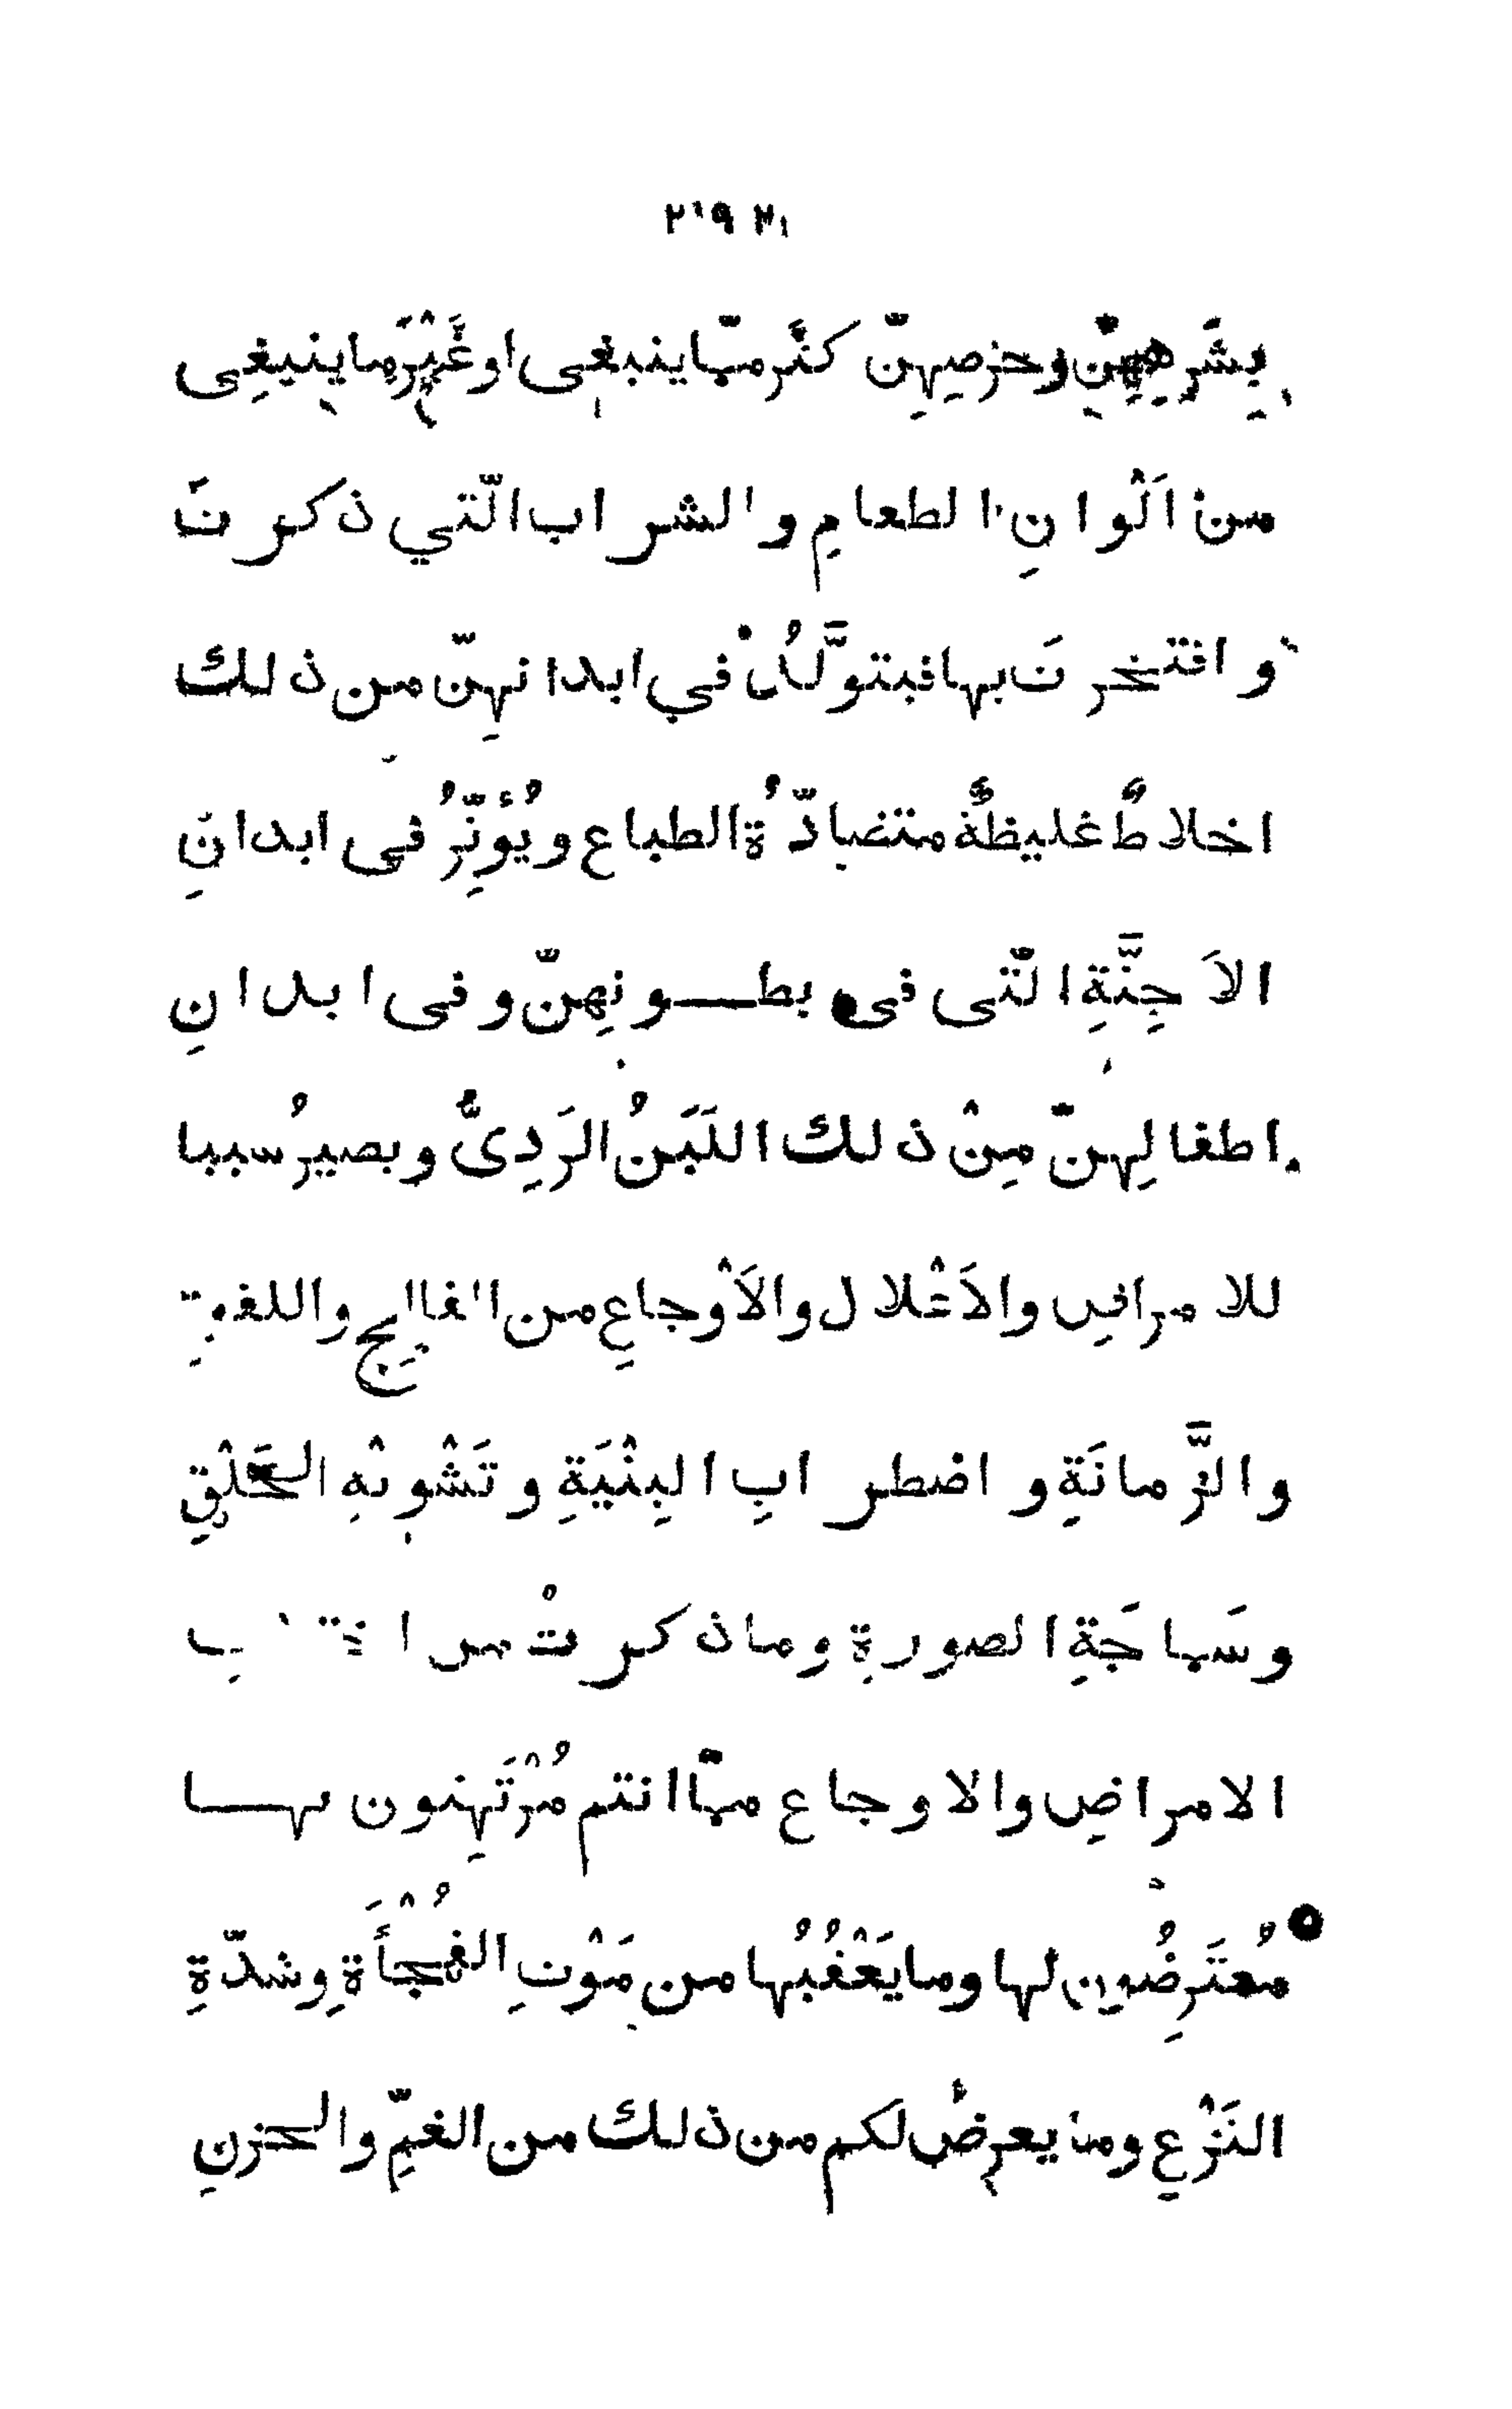 بشَرِهِهِنّ وحرصِهِنّ كثَر ممّا ينبغى او غَيْرَ ما ينبغِى
من اَلْوانِ الطعامِ والشراب الّتي ذكرنَ
وافتخرنَ بها فيتولَّدُ في ابدانهِنّ من ذلك
اخلاطٌ غليظةٌ متضادّةُ الطباع ويُؤثِّرُ فى ابدانِ
الاَجِنَّةِ الّتى فى بطونِهِنّ وفى ابدانِ
اطفالِهِنّ مِنْ ذلك اللَبَنُ الرَدِىُّ ويصيرُ سببا
للامراضِ والاَعْلال والاَوْجاعِ من الفالِجِ واللقوةِ
والزَّمانَةِ واضطرابِ البِنْيَةِ وتَشْويْهِ الخَلْقِ
وسَماجَةِ الصورةِ وما ذكرتْ من
الامراضِ والاوجاع ممّا انتم مُرْتَهِنون بها
مُعتَرِضُون لها وما يَعْقُبُها من مَوْتِ الفُجْأَةِ وشدّةِ
النَزْعِ وما يعرِضُ لكم من ذلك من الغمِّ والحزنِ